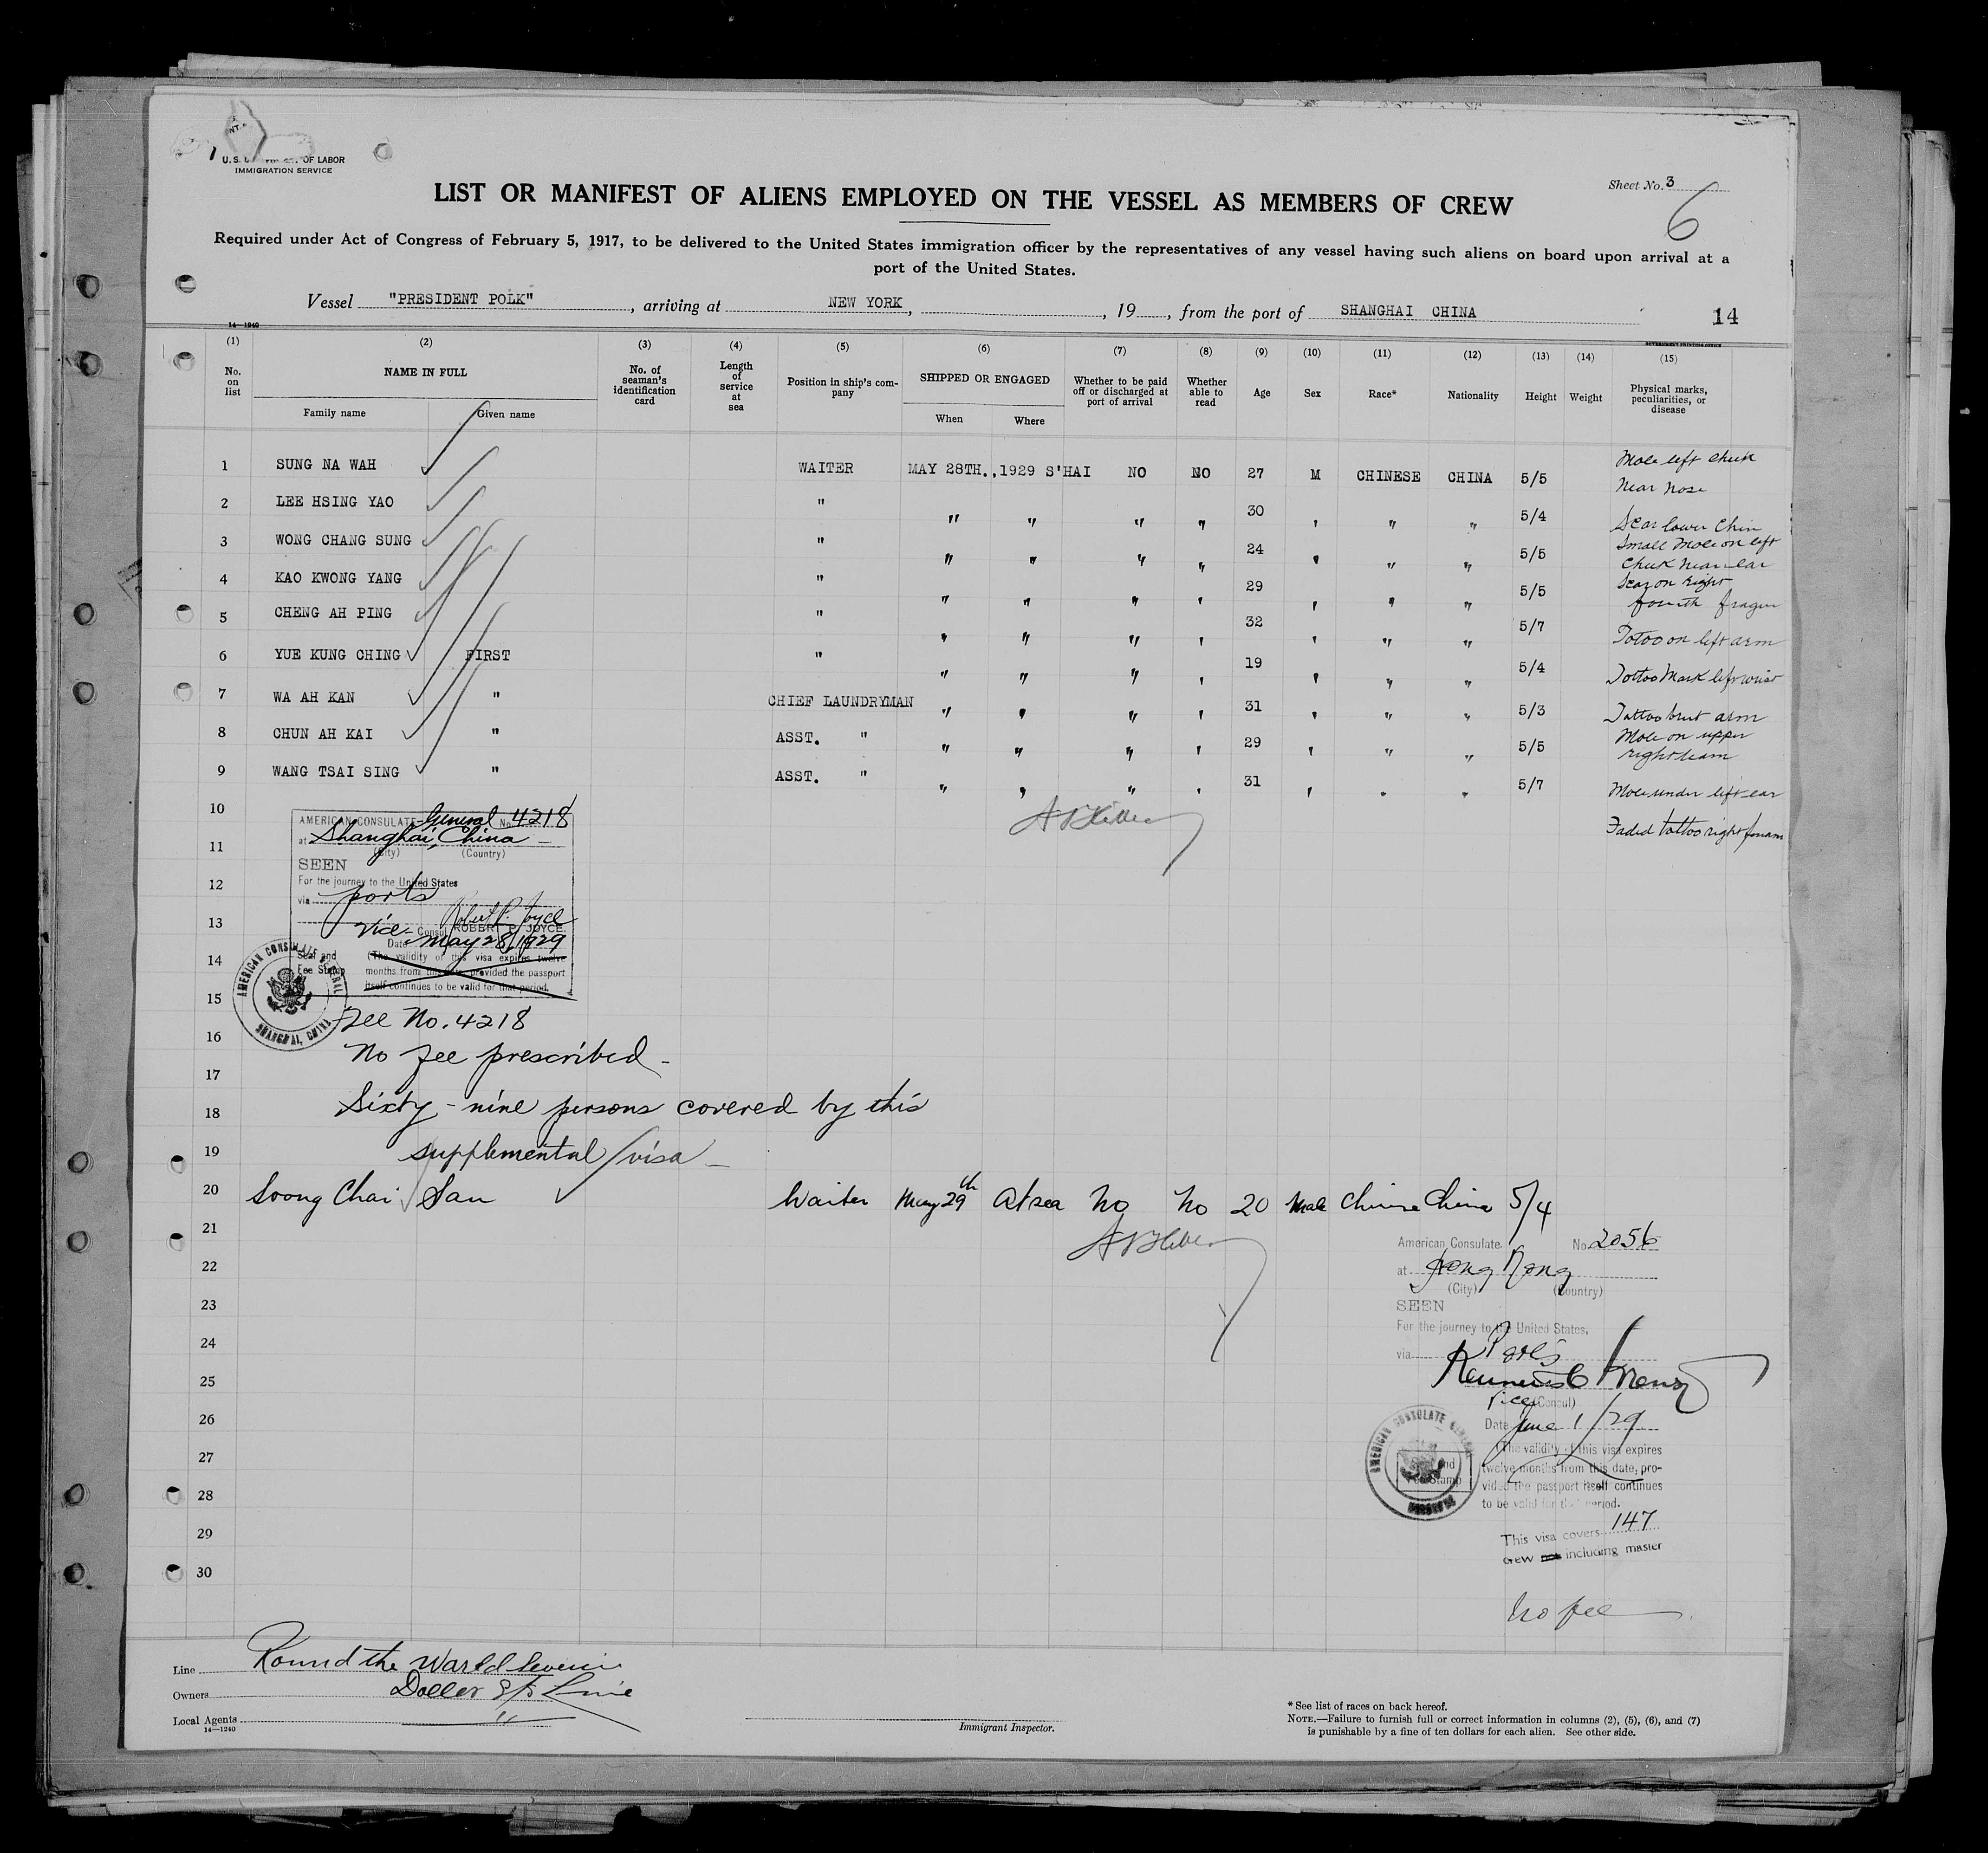 U.S. OF LABOR
IMMIGRATION SERVICE
Sheet No. 3
6
LIST OR MANIFEST OF ALIENS EMPLOYED ON THE VESSEL AS MEMBERS OF CREW
Required under Act of Congress of February 5, 1917, to be delivered to the United States immigration officer by the representatives of any vessel having such aliens on board upon arrival at a
port of the United States.
Vessel "PRESIDENT POLK", arriving at NEW YORK, , 19 , from the port of SHANGHAI CHINA 14
14—1240 GOVERNMENT PRINTING OFFICE
(1) (2) (3) (4) (5) (6) (7) (8) (9) (10) (11) (12) (13) (14) (15)
No. on list NAME IN FULL Family name Given name No. of seaman's identification card Length of service at sea Position in ship's company SHIPPED OR ENGAGED When Where Whether to be paid off or discharged at port of arrival Whether able to read Age Sex Race* Nationality Height Weight Physical marks, peculiarities, or disease
1 SUNG NA WAH WAITER MAY 28TH.,1929 S'HAI NO NO 27 M CHINESE CHINA 5/5 Mole left cheek near nose
2 LEE HSING YAO " " " " " 30 " " " 5/4 Scar lower chin
3 WONG CHANG SUNG " " " " " 24 " " " 5/5 Small mole on left cheek near ear
4 KAO KWONG YANG " " " " " 29 " " " 5/5 Scar on right fourth
5 CHENG AH PING " " " " " 32 " " " 5/7 Totoo on left arm
6 YUE KUNG CHING FIRST " " " " " 19 " " " 5/4 Tottoo Mark left wrist
7 WA AH KAN " CHIEF LAUNDRYMAN " " " " 31 " " " 5/3 Tattoo arm
8 CHUN AH KAI " ASST. " " " " " 29 " " " 5/5 Mole on upper right
9 WANG TSAI SING " ASST. " " " " " 31 " " " 5/7 Mole under left ear
10 Faded tattoo right
11
12
13
14
15
16
17
18
19
AMERICAN CONSULATE General No. 4218
at Shanghai, China
(City) (Country)
SEEN
For the journey to the United States
via ports
Robert P. Joyce
Vice Consul ROBERT P. JOYCE
Date May 28, 1929
Seal and Fee Stamp
(The validity of this visa expires twelve
months from this date, provided the passport
itself continues to be valid for that period.
AMERICAN CONSULATE GENERAL
SHANGHAI, CHINA
Fee No. 4218
No fee prescribed
Sixty-nine persons covered by this
supplemental visa
20 Soong Chai San Waiter May 29th At sea No No 20 Male Chinese China 5/4
21
22
23
24
25
26
27
28
29
30
American Consulate No. 2056
at Hong Kong
(City) (Country)
SEEN
For the journey to the United States,
via Ports
Vice (Consul)
Date June 1/29
AMERICAN CONSULATE GENERAL
HONGKONG
Seal and
Fee Stamp
(The validity of this visa expires
twelve months from this date, pro-
vided the passport itself continues
to be valid for that period.
This visa covers 147
crew not including master
No fee
Line Round the World Service
Owners Dollar SS Line
Local Agents "
14—1240
Immigrant Inspector.
* See list of races on back hereof.
NOTE.—Failure to furnish full or correct information in columns (2), (5), (6), and (7)
is punishable by a fine of ten dollars for each alien. See other side.